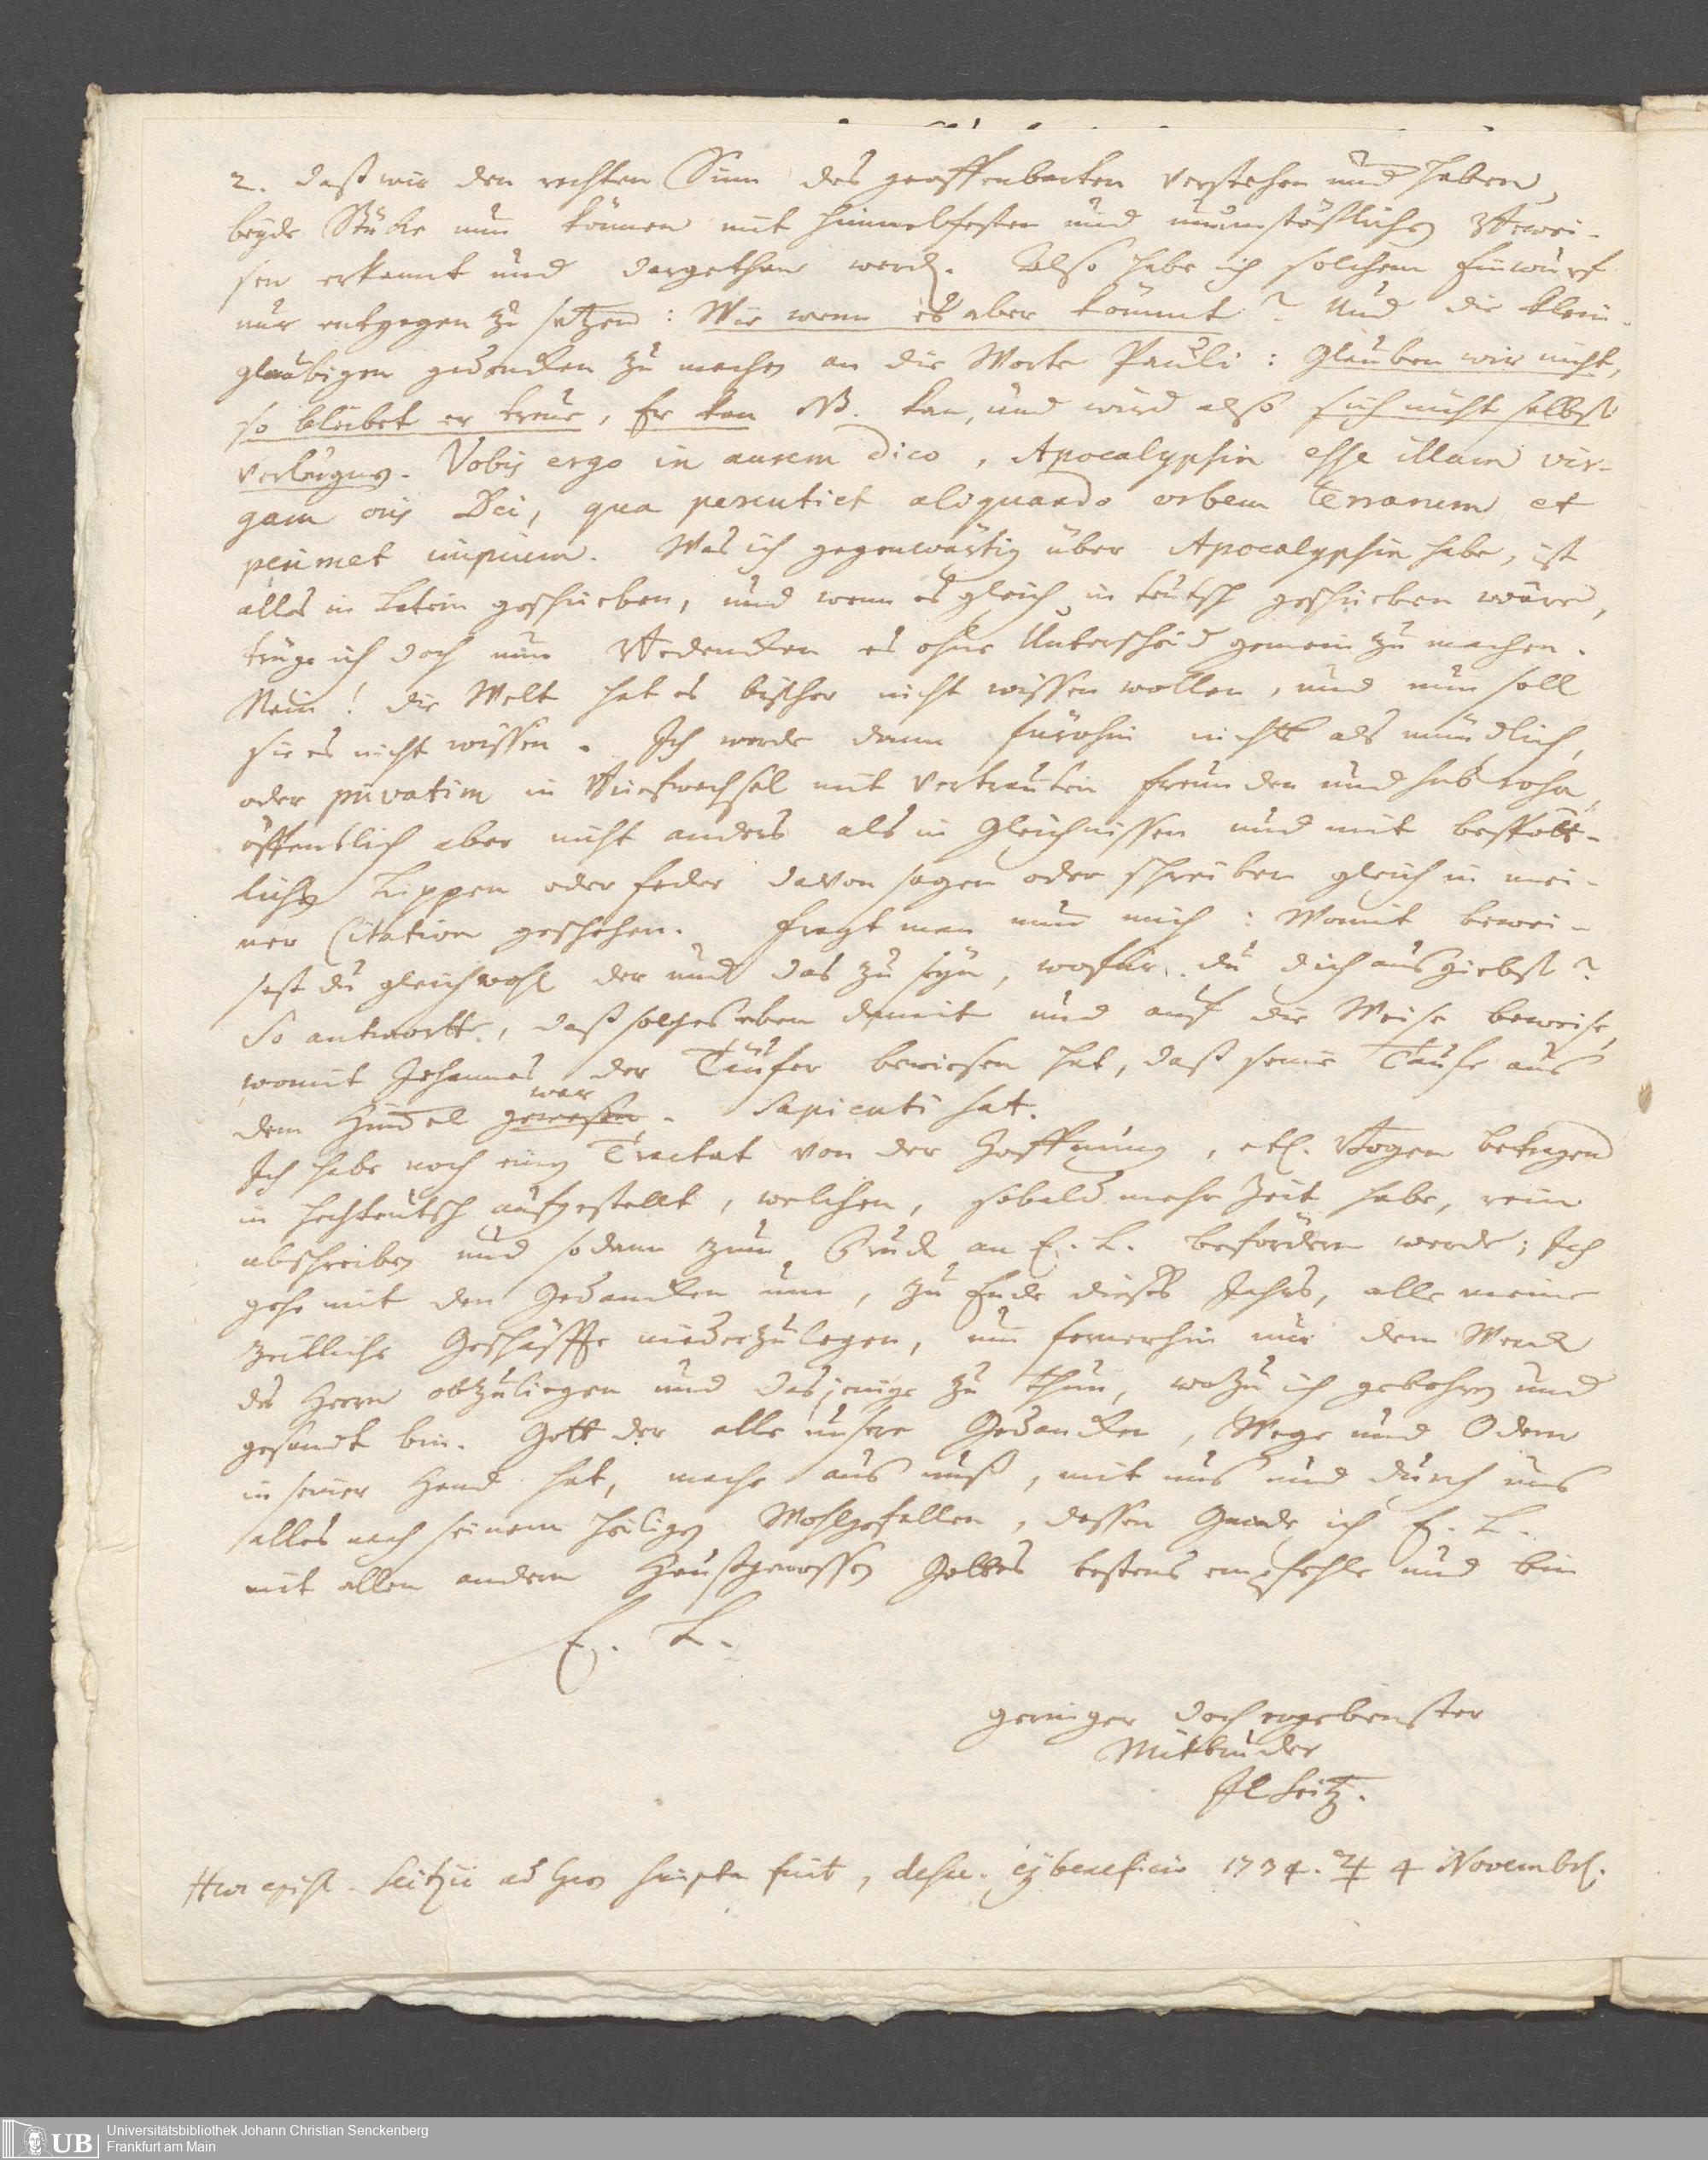 2. daß wir den rechten Sinn des geoffenbarten verstehen und haben,
beyde Stücke nun können mit himmelfesten und unumstößlichen Bewei-
sen erkannt und dargethan werden. Also habe ich solchem Einwurf
nur entgegen zu setzen: Wie wenn es aber kömmt? Und die klein-
glaubigen gedencken zu machen an die Worte Pauli: Glauben wir nicht,
so bleibet er treue, Er kan NB. kan, und wird also sich nicht selbst
verleugnen. Vobis ergo in aurem dico, Apocalypsin esse illam vir-
gam oris Dei, qua percutiet aliquando orbem terrarum et
perimet impium. Was ich gegenwärtig über Apocalypsin habe, ist
alles in Latein geschrieben, und wenn es gleich in teutsch geschrieben wäre,
trüge ich doch nun Bedencken es ohne Unterscheid gemein zu machen.
Nein! die Welt hat es bißher nicht wissen wollen, und nun soll
sie es nicht wissen. Ich werde denn fürohin nichts als mündlich,
oder privatim in Briefwechsel mit vertrauten Freunden und sub rosa,
öffentlich aber nicht anders als in Gleichnissen und mit
lichen Lippen oder Feder davon sagen oder schreiben gleich in mei-
ner Citation geschehen. Fragt man nun mich: Womit bewei-
sest du gleichwohl der und das zu seyn, wofür du dich ausgiebst?
So antwortte, daß solches eben damit und auf die Weise beweise,
womit Johannes der Täufer bewiesen hat, daß seine Taufe aus
dem Himmel gewesen war. Sapienti sat.
Ich habe noch einen Tractat von der Hoffnung, etl. Bogen betragend
in hochteutsch aufgestellt, welchen, sobald mehr Zeit habe, rein
abschreiben und sodann zum Druck an E. L. befördern werde; Ich
gehe mit den Gedancken um, zu Ende dieses Jahrs, alle meine
zeitliche Geschäffte niederzulegen, um fernerhin nur dem Werck
des Herrn obzuliegen und dasjenige zu thun, wozu ich gebohren und
gesandt bin. Gott der alle unsere Gedancken, Wege und Odem
in seiner Hand hat, mache aus uns, mit uns und durch uns
alles nach seinem heiligen Wohlgefallen, dessen Gnade ich E. L.
mit allen andern Haußgenossen Gottes bestens empfehle und bin
E. L.
geringer doch ergebenster
Mitbruder
Seitz.
Haec epist. Seitzii ad scripta fuit, 1734. ♃ 4 Novembr.
Universitätsbibliothek Johann Christian Senckenberg
Frankfurt am Main
UB